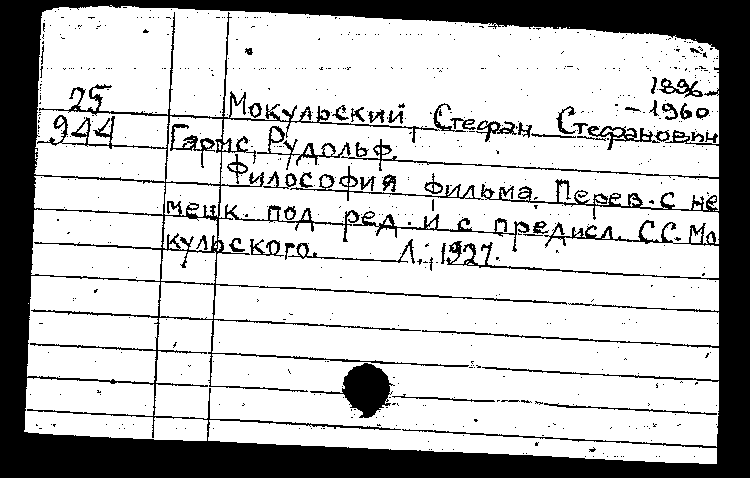 1896-
25 Мокульский, Стефан Стефанович
-1960
944 Гармс, Рудольф.
Философия фильма. Перев. с не
мецк. под ред. и с предисл. С.С. Мо
кульского. Л., 1927.